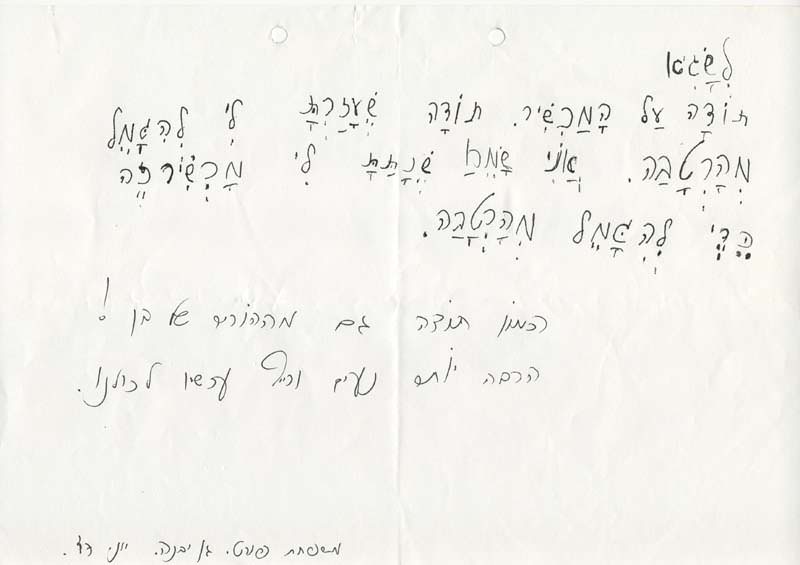 לשגיא
תודה על המכשיר. תודה שעזרת לי להגמל
מהרטבה. אני שמח שנתת לי מכשיר כזה
כדי להגמל מהרטבה.
וכמובן תודה גם מההורים של בן !
הרבה יותר נעים וכייף עכשיו לכולנו.
משפחת גן יבנה. יוני